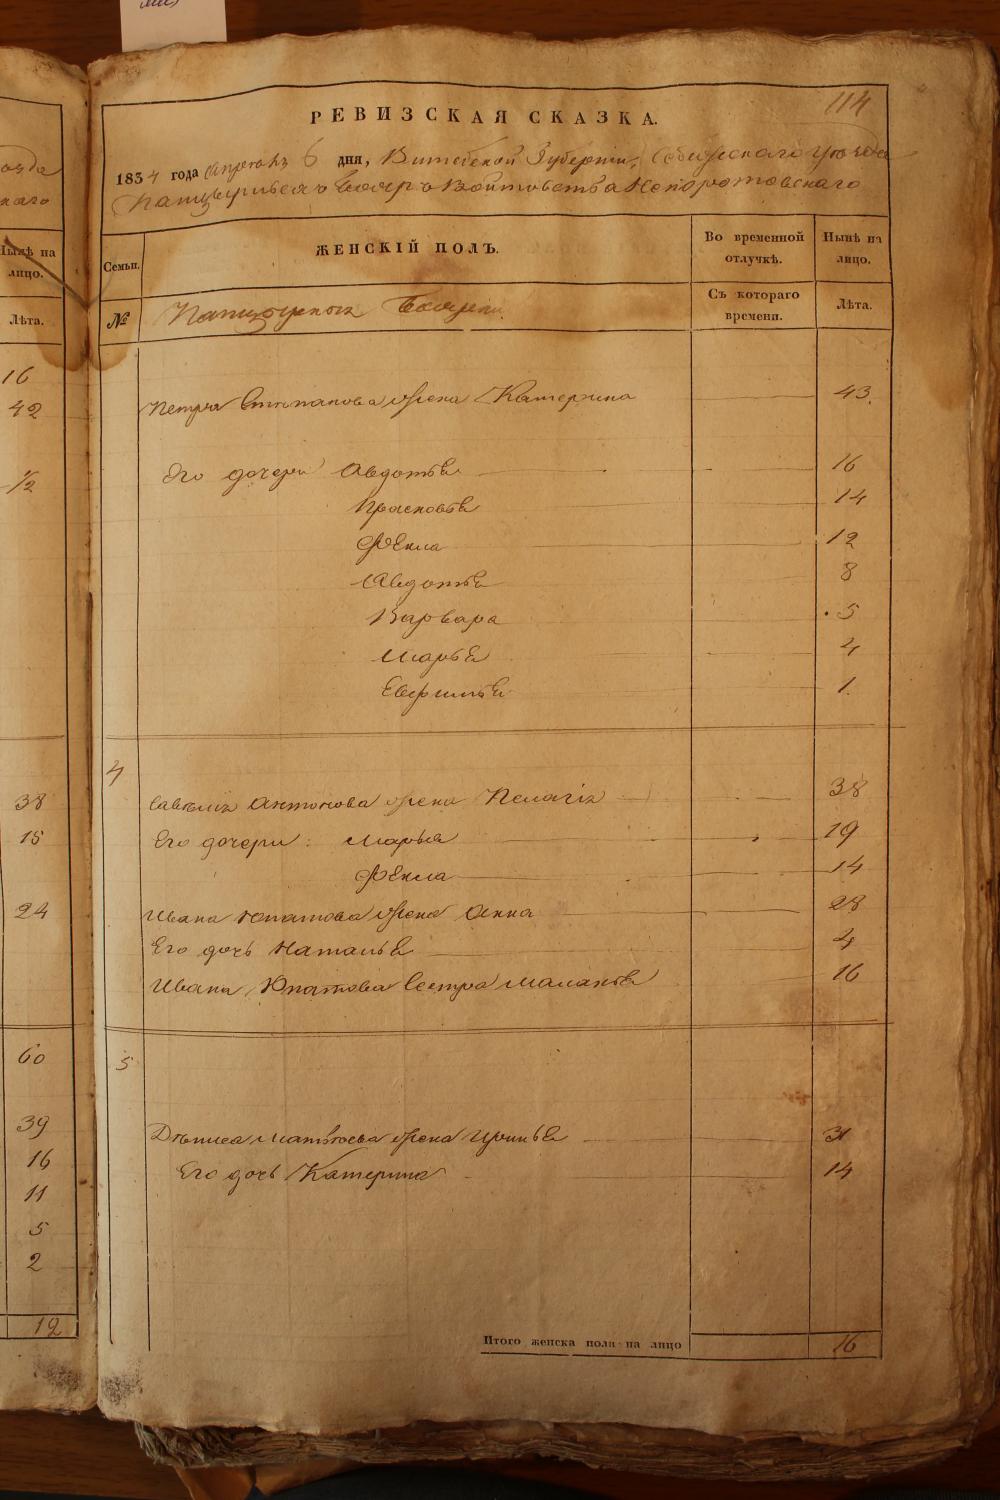 114
РЕВИЗСКАЯ СКАЗКА.
1834 года Апреля 6 дня, Витебской Губернии, Себежского уезда
Панцырныхъ Бояръ Войтовства Непоротовскаго
уезда
наго
Нынѣ на лицо.
Лѣта.
Семьи.
ЖЕНСКІЙ ПОЛЪ.
Во временной отлучкѣ.
Нынѣ на лицо.
№
Панцырныхъ Бояръ
Съ котораго времени.
Лѣта.
16
42
1/2
Петра Степанова жена Катерина 43.
Его дочери Авдотья 16
Прасковья 14
Фекла 12
Авдотья 8
Варвара 5
Марья 4
Евфимья 1.
4
38 Савелія Антонова жена Пелагія 38
15 Его дочери: Марья 19
Фекла 14
24 Ивана Юпатова жена Анна 28
Его дочь Наталья 4
Ивана Юпатова сестра Маланья 16
60 5
39 Дениса Матвеева жена Иринья 31
16 Его дочь Катерина 14
11
5
2
12
Итого женска пола на лицо 16